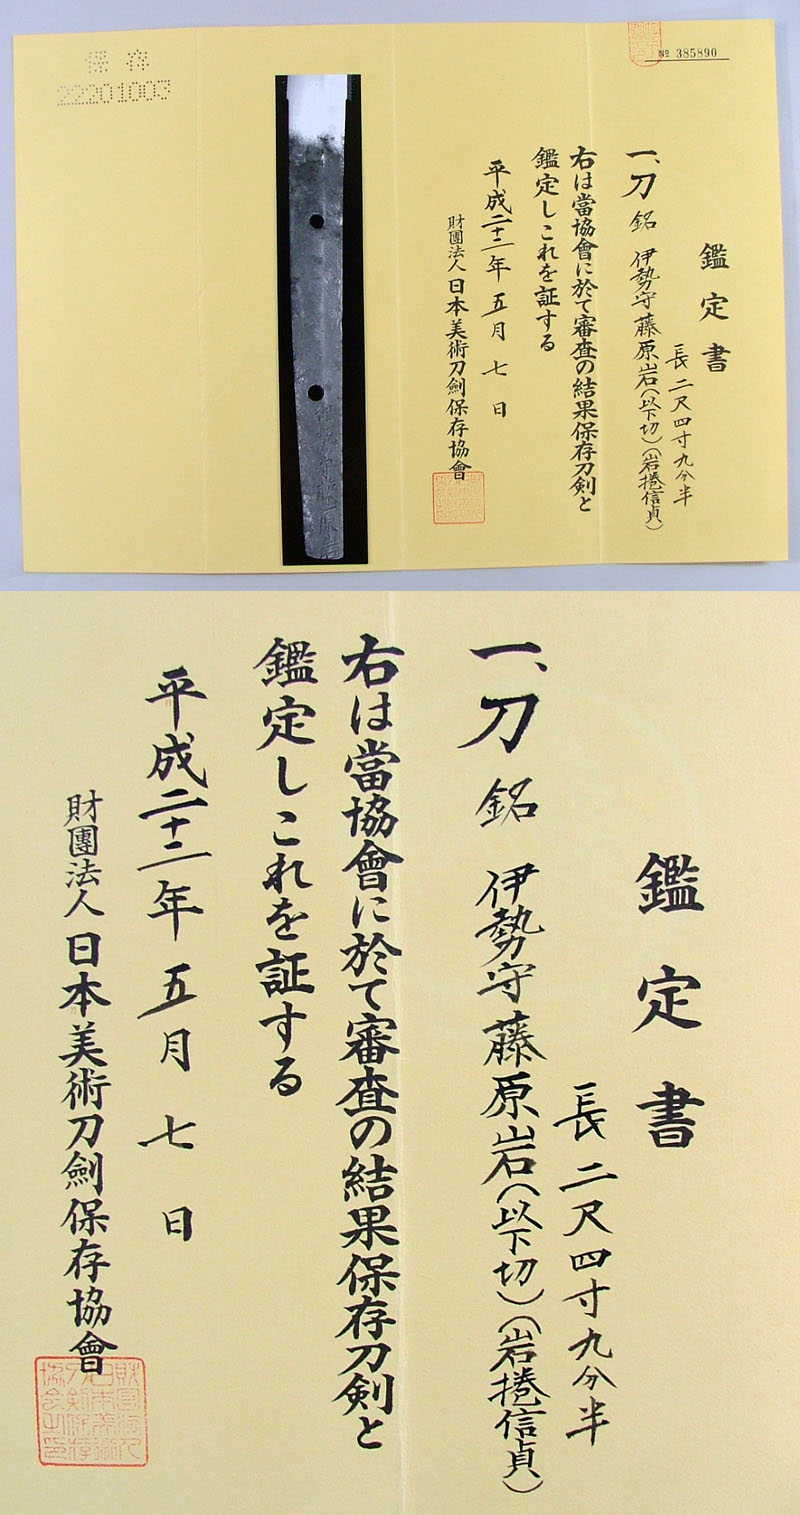 保存
22201003
№ 385890
鑑定書
長二尺四寸九分半
一、刀 銘 伊勢守藤原岩(以下切)(岩捲信貞)
右は當協會に於て審査の結果保存刀剣と
鑑定しこれを証する
平成二十二年五月七日
財團法人日本美術刀劍保存協會
鑑定書
長二尺四寸九分半
一、刀 銘 伊勢守藤原岩(以下切)(岩捲信貞)
右は當協會に於て審査の結果保存刀剣と
鑑定しこれを証する
平成二十二年五月七日
財團法人日本美術刀劍保存協會